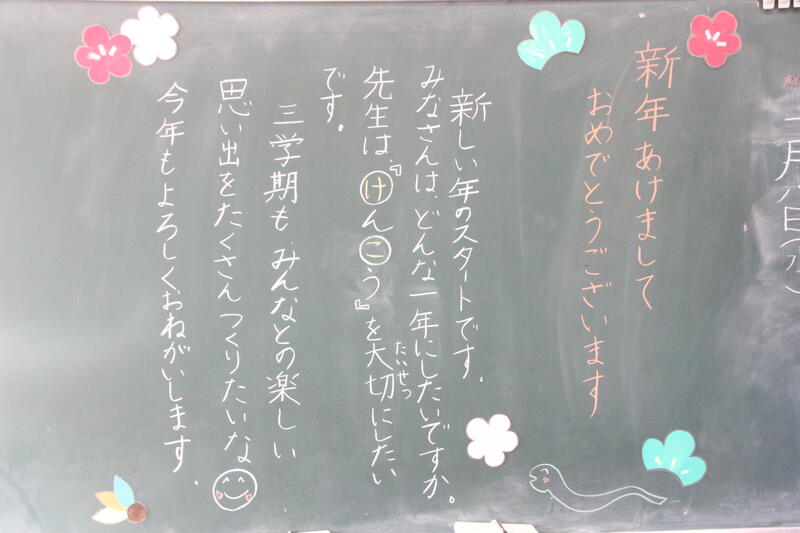 一月八日(水)
新年あけまして
おめでとうございます
新しい年のスタートです。
みなさんは、どんな一年にしたいですか。
先生は、『けんこう』を大切にしたい
たいせつ
です。
三学期も、みんなとの楽しい
思い出をたくさんつくりたいな
今年もよろしくおねがいします。